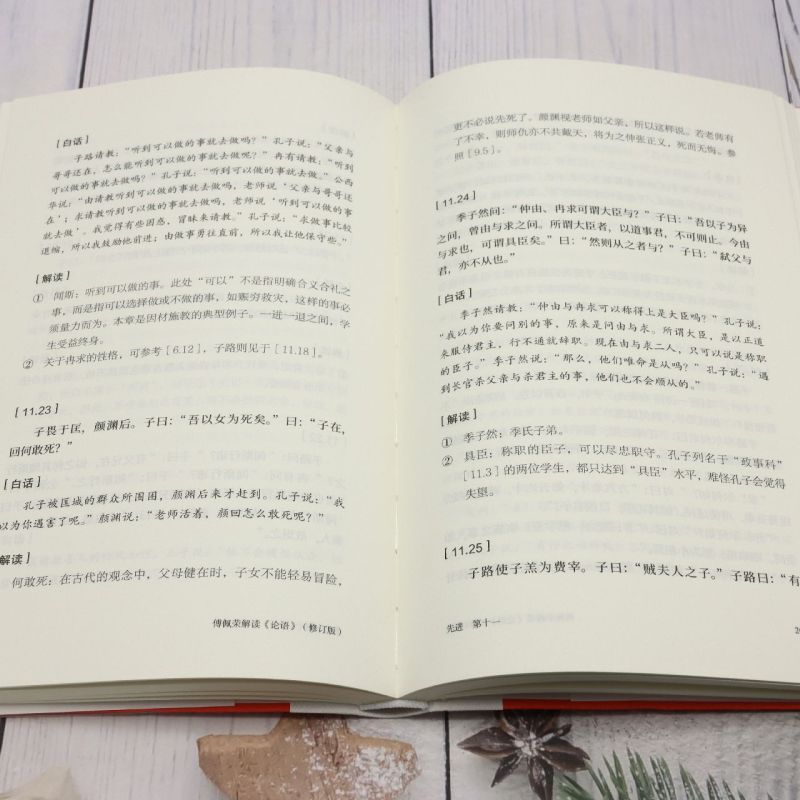 [白话]
子路请教：“听到可以做的事就去做吗？”孔子说：“父亲与
哥哥还在，怎么能听到可以做的事就去做呢？”冉有请教：“听到
可以做的事就去做吗？”孔子说：“听到可以做的事就去做。”公西
华说：“由请教听到可以做的事就去做吗，老师说‘父亲与哥哥还
在’；求请教听到可以做的事就去做吗，老师说‘听到可以做的事
就去做’。我觉得有些困惑，冒昧来请教。”孔子说：“求做事比较
退缩，所以我鼓励他前进；由做事勇往直前，所以我让他保守些。”
[解读]
① 闻斯：听到可以做的事。此处“可以”不是指明确合义合礼之
事，而是指可以选择做或不做的事，如赈穷救灾，这样的事必
须量力而为。本章是因材施教的典型例子。一进一退之间，学
生受益终身。
② 关于冉求的性格，可参考[6.12]，子路则见于[11.18]。
[11.23]
子畏于匡，颜渊后。子曰：“吾以女为死矣。”曰：“子在，
回何敢死？”
[白话]
孔子被匡城的群众所围困，颜渊后来才赶到。孔子说：“我
以为你遇害了呢。”颜渊说：“老师活着，颜回怎么敢死呢？”
解读]
何敢死：在古代的观念中，父母健在时，子女不能轻易冒险，
傅佩荣解读《论语》（修订版）
更不必说先死了。颜渊视老师如父亲，所以这样说。若老师有
了不幸，则师仇亦不共戴天，将为之伸张正义，死而无悔。参
照[9.5]。
[11.24]
季子然问：“仲由、冉求可谓大臣与？”子曰：“吾以子为异
之问，曾由与求之问。所谓大臣者，以道事君，不可则止。今由
与求也，可谓具臣矣。”曰：“然则从之者与？”子曰：“弑父与
君，亦不从也。”
[白话]
季子然请教：“仲由与冉求可以称得上是大臣吗？”孔子说：
“我以为你要问别的事，原来是问由与求。所谓大臣，是以正道
来服侍君主，行不通就辞职。现在由与求二人，只可以说是称职
的臣子。”季子然说：“那么，他们唯命是从吗？”孔子说：“遇
到长官杀父亲与杀君主的事，他们也不会顺从的。”
[解读]
① 季子然：季氏子弟。
② 具臣：称职的臣子，可以尽忠职守。孔子列名于“政事科”
[11.3]的两位学生，都只达到“具臣”水平，难怪孔子会觉得
失望。
[11.25]
子路使子羔为费宰。子曰：“贼夫人之子。”子路曰：“有
先进 第十一